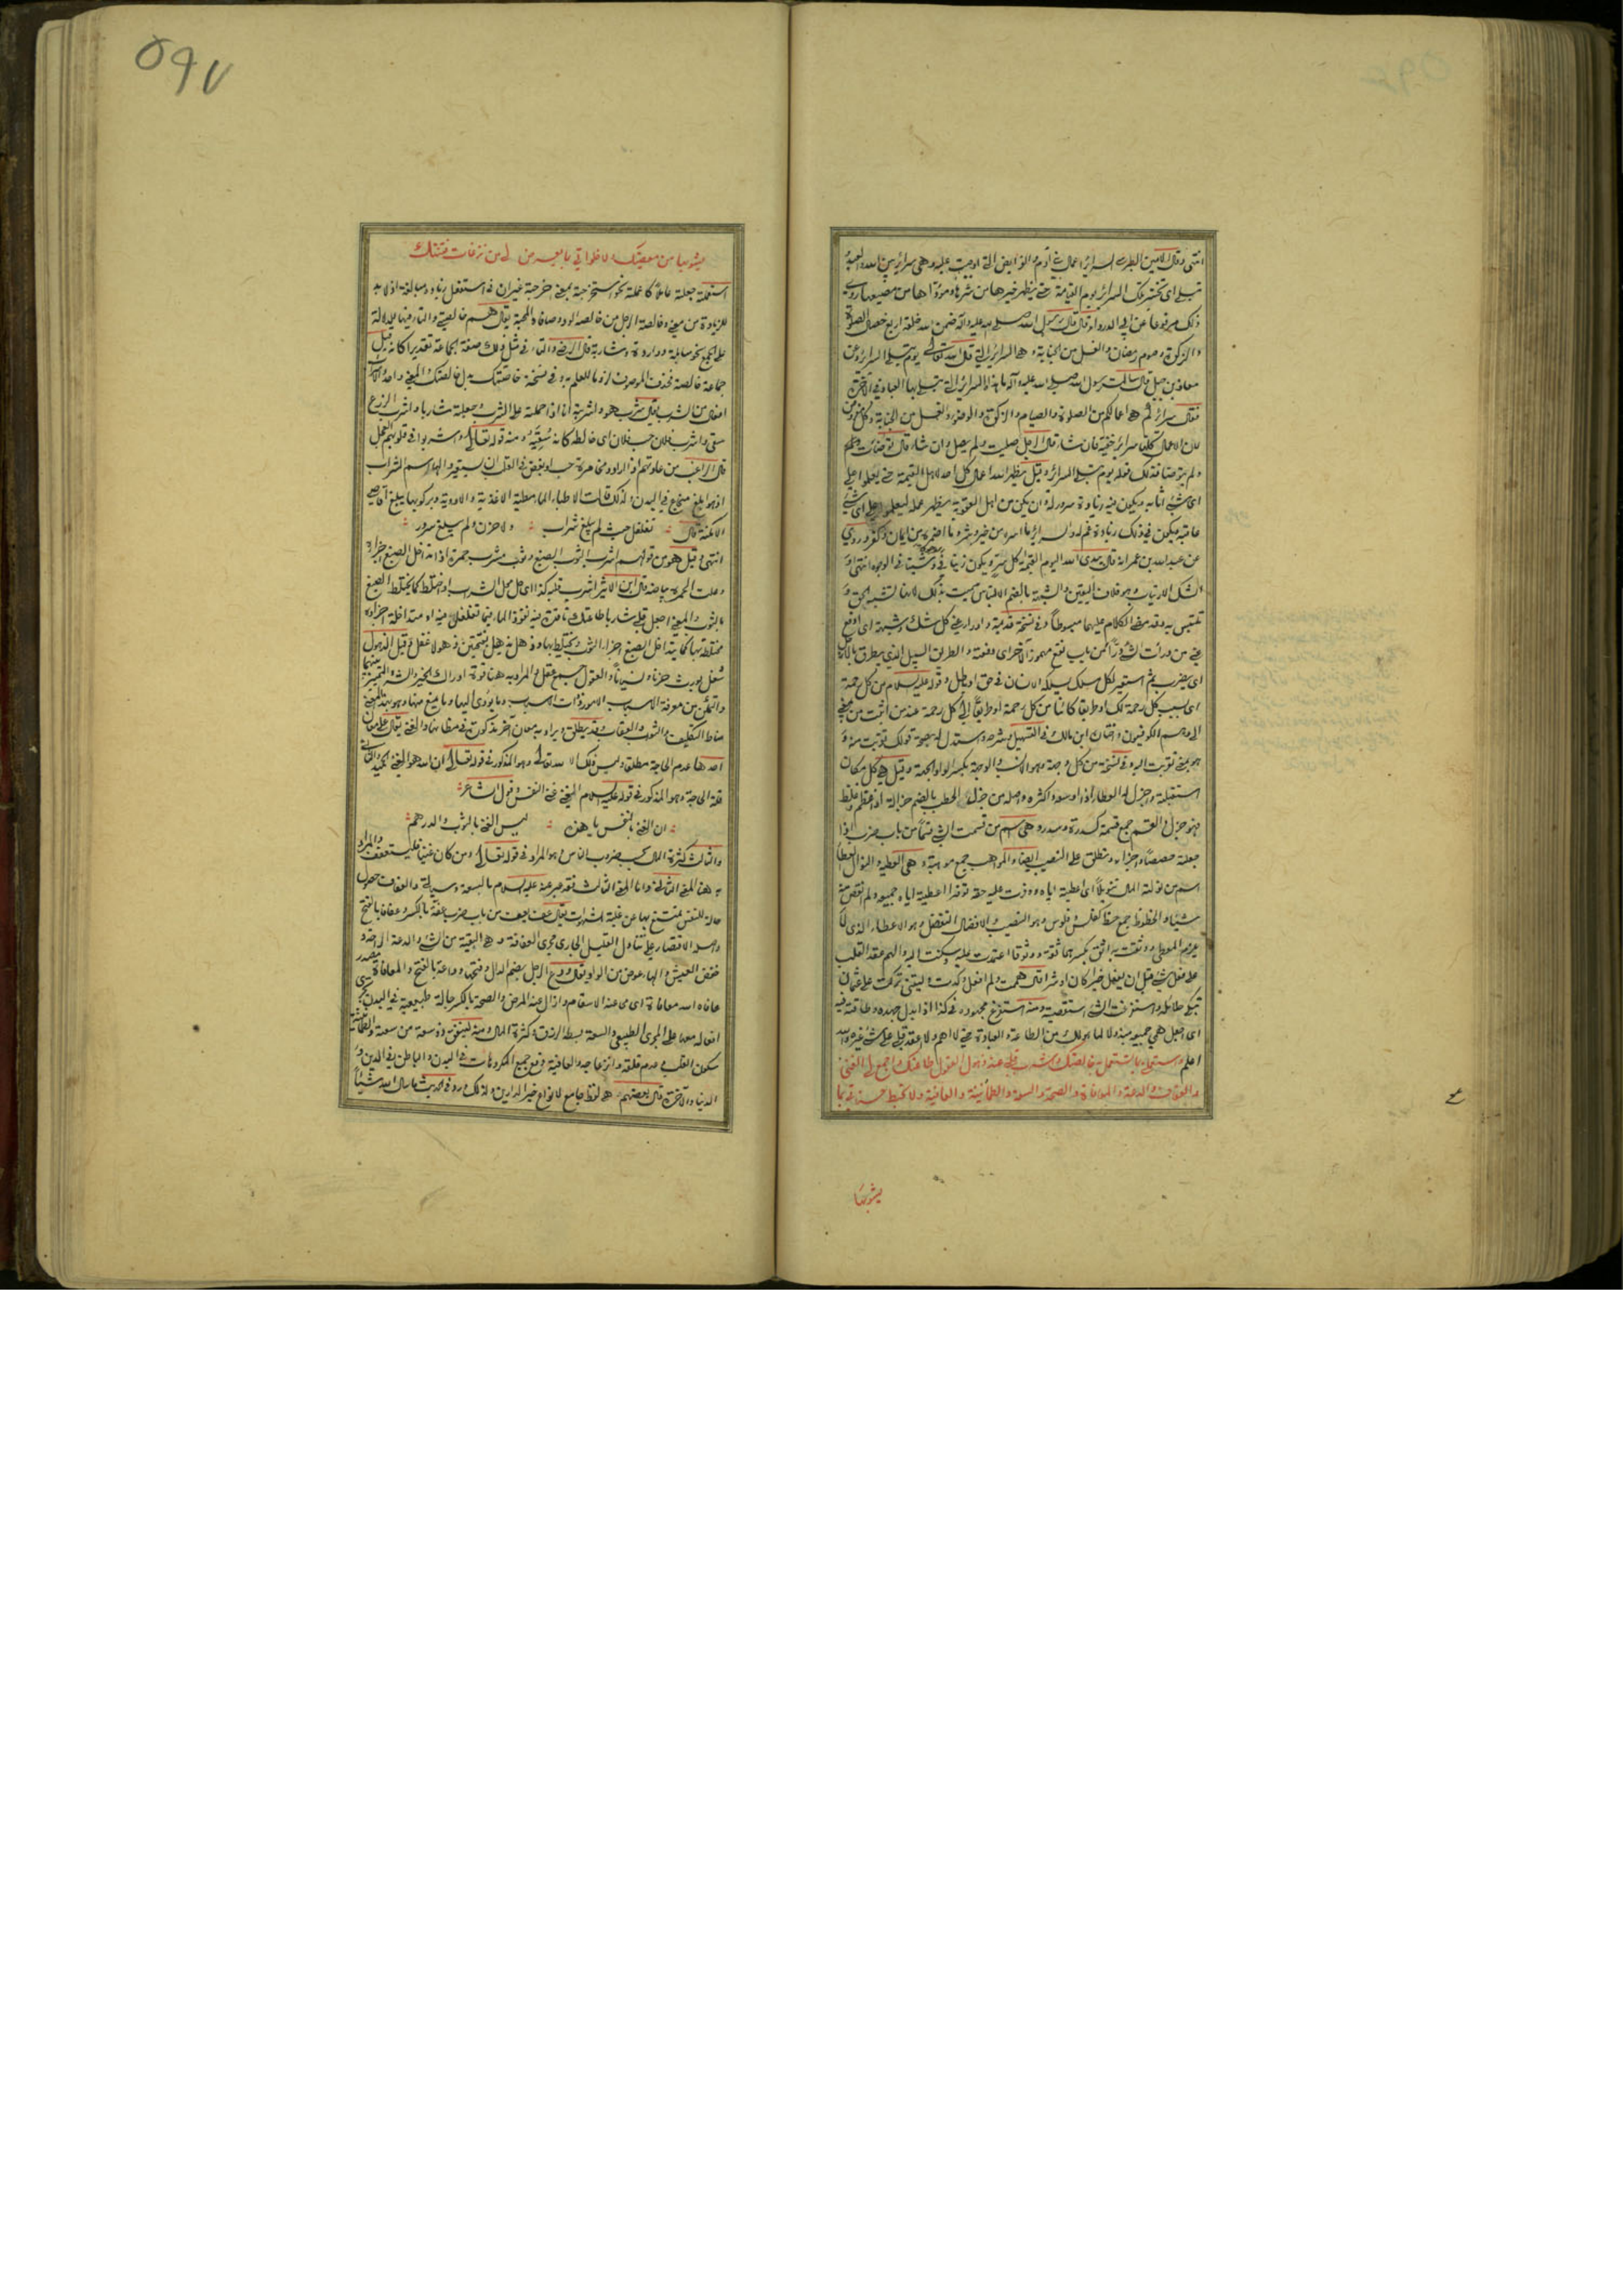 انتهى وقال الامين الطبرسى السرائر اعمال بنى آدم والفرائض التى اوجبت عليه وهى سرائر بين الله والعبد
تبلى اى تختبر تلك السرائر يوم القيامة حتى يظهر خيرها من شرها ومؤداها من مضيعها روى
ذلك مرفوعا عن ابى الدرداء قال قال رسول الله صلى الله عليه وآله ضمن الله خلقه اربع خصال الصلوة
والزكوة وصوم رمضان والغسل من الجنابة وهى السرائر التى قال الله تعالى يوم تبلى السرائر وعن
معاذ بن جبل قال سالت رسول الله صلى الله عليه وآله ما هذه السرائر التى تبلى بها العباد فى الآخرة
فقال سرائركم هى اعمالكم من الصلوة والصيام والزكوة والوضوء والغسل من الجنابة وكل مفروض
لان الاعمال كلها سرائر خفية فان شاء قال الرجل صليت ولم يصل وان شاء قال توضات ولم
ولم يتوضا فذلك قوله يوم تبلى السرائر وقيل يظهر الله اعمال كل احد لاهل القيمة حتى يعلموا على
اى شئ اثابه ويكون فيه زيادة سرور له وان يكن من اهل العقوبة يظهر عمله ليعلموا على اى شئ
عاقبه ويكون فى ذلك زيادة غم له والسرائر ما اسره من خير وشر وما اضمره من ايمان وكفر وروى
عن عبد الله بن عمر انه قال يبدى الله يوم القيمة كل سر ويكون زينا فى وشينا فى الوجوه انتهى
الشك الارتياب وهو خلاف اليقين والشبهة بالضم الالتباس سميت بذلك لانها تشبه الحق
تلتبس به وقد مضى الكلام عليهما مبسوطا وفى نسخة قديمة وادرا عنى كل شك وشبهة اى ادفع
عنى من درات الشئ درا من باب نفع مهموز الآخر اى دفعته والطريق السبيل الذى يطرق بالارجل
اى يضرب ثم استعير لكل مسلك يسلكه الانسان فى حق او باطل وقوله عليه السلام من كل جهة
استقبلته واجزل له العطاء اذا اوسعه واكثره واصله من جزل الحطب بالضم جزالة اذا عظم وغلظ
فهو جزل والقسم جمع قسمة كسدرة وسدر وهى اسم من قسمت الشئ قسما من باب ضرب اذا
جعلته حصصا واجزاء وتطلق على النصيب ايضا والمواهب جمع موهبة وهى العطية والنوال العطاء
اسم من نولته المال تنويلا اى اعطيته اياه ووفرت عليه حقه توفيرا اعطيته اياه جميعه ولم انقص منه
شيئا والحظوظ جمع حظ كفلس وفلوس وهو النصيب والافضال التفضل وهو الاعطاء الذى لا
يلزم المعطى ووثقت به اثق بكسرهما ثقة ووثوقا اعتمدت عليه وسكنت اليه والهم عقد القلب
على فعل شئ قبل ان يفعل خيرا كان او شرا قال هممت ولم افعل وكدت وليتنى تركت على عثمان
تبكى حلائله واستفرغت الشئ استقصيته ومنه استفرغ مجهوده فى كذا اذا بذل جهده وطاقته فيه
اى اجعل همى جميعه مبذولا لما هو لك من الطاعة والعبادة حتى لا اهم ولا اعقد قلبى على شئ غيره والله
اعلم واستعملنى بما تستعمل به خالصتك واشرب قلبى عند ذهول العقول طاعتك واجمع لى الغنى
والعفاف والدعة والمعافاة والصحة والسعة والطمانينة والعافية ولا تحبط حسناتى بما
يشوبها
۵۹۷
يشوبها من معصيتك ولا خلواتى بما يعرض لى من نزغات فتنتك
استعملته جعلته عاملا كاعملته نحو استخرجته بمعنى اخرجته غير ان فى استفعل زيادة ومبالغة اذ لا بد
للزيادة من معنى وخالصة الرجل من خالصه الود وصافاه المحبة يقال هم خالصتى والتاء فيها للدلالة
على الجمع نحو سابلة وواردة وشاربة قال الرضى والتاء فى مثل ذلك صفة الجماعة تقديرا كانه قيل
جماعة خالصة فحذف الموصوف لزوما للعلم به وفى نسخة خاصتك بدل خالصتك والمعنى واحد والاشراب
افعال من الشرب يقال شرب هو واشربته انا اذا حملته على الشرب وجعلته شاربا واشرب الزرع
سقى واشرب فلان حب فلان اى خالطه كانه سقيه ومنه قوله تعالى واشربوا فى قلوبهم العجل
قال الراغب من عادتهم اذا ارادوا مخامرة حب او بغض فى القلب ان يستعيروا لها اسم الشراب
اذ هو ابلغ منجع فى البدن ولذلك قالت الاطباء الماء مطية الاغذية والادوية ومركوبها يبلغ اقاصى
الامكنة قال تغلغل حيث لم يبلغ شراب ولا حزن ولم يبلغ سرور
انتهى وقيل هو من قولهم اشرب الثوب الصبغ وثوب مشرب حمرة اذا تداخل الصبغ اجزاءه
وعلت الحمرة بياضه قال ابن الاثير اشرب قلبه كذا اى حل محل الشراب او اختلط كما يختلط الصبغ
بالثوب والمعنى اجعل قلبى شاربا طاعتك نافذة فيه نفوذ الماء فيما تغلغل فيه او متداخلة اجزاءه
شغل يورث حزنا ونسيانا والعقول جمع عقل والمراد به هنا قوة ادراك الخير والشر والتمييز بينهما
والتمكن من معرفة الاسباب الامور وذوات الاسباب وما يؤدى اليها وما يمنع منها وهو بهذا المعنى
مناط التكليف والثواب والعقاب وقد يطلق ويراد به معان اخر مذكورة فى مظانها والغنى يقال على معان
احدها عدم الحاجة مطلقا وليس ذلك الا لله تعالى وهو المذكور فى قوله تعالى ان الله هو الغنى الحميد والثانى
قلة الحاجة وهو المذكور فى قوله عليه السلام الغنى غنى النفس وقول الشاعر
ان الغنى بالنفس يا هذه ليس الغنى بالثوب والدرهم
والثالث كثرة المال بحسب ضروب الناس وهو المراد فى قوله تعالى ومن كان غنيا فليستعفف والمراد
به هنا المعنى الثانى واما المعنى الثالث فقد عبر عنه عليه السلام بالسعة وسياتى والعفاف حصول
حالة للنفس تمتنع بها عن غلبة الشهوات يقال عف يعف من باب ضرب عفة بالكسر وعفافا بالفتح
واصله الاقتصار على تناول القليل الجارى مجرى العفافة وهى البقية من الشئ والدعة الراحة و
خفض العيش والهاء عوض من الواو يقال ودع الرجل بضم الدال وفتحها وداعة بالفتح والمعافاة مصدر
عافاه الله معافاة اى محى عنه الاسقام وازال عنه المرض والصحة بالكسر حالة طبيعية فى البدن تجرى
افعاله معها على المجرى الطبيعى والسعة بسط الرزق وكثرة المال ومنه لينفق ذو سعة من سعته والطمانينة
سكون القلب وعدم قلقه وانزعاجه والعافية دفع جميع المكروهات فى البدن والباطن فى الدين و
الدنيا والآخرة قال بعضهم هى لفظ جامع لانواع خير الدارين ولذلك ورد فى الحديث ما سال الله شيئا